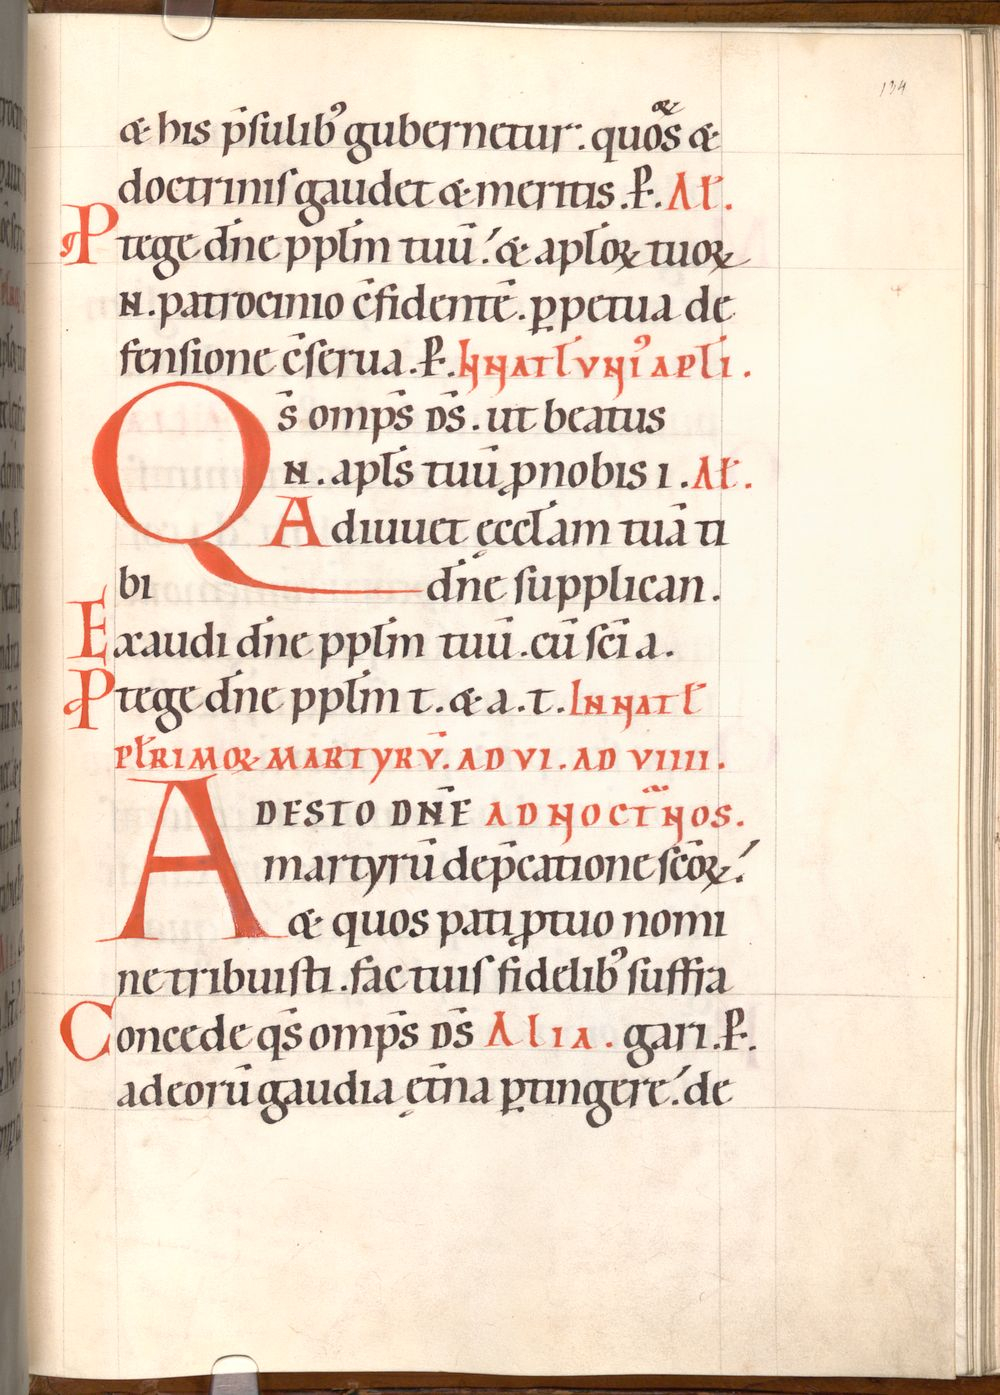 134
& his p̄sulibꝰ gubernetur. quos & 
doctrinis gaudet & meritis. P̄. Al̄.
Ptege dn̄e ppl̄m tuū: & apl̄oꝝ tuoꝝ
N. patrocinio c̄fidentē. ꝑpetua de
fensione c̄serua. P̄. In natl̄ uniꝰ apl̄i.
Qs̄ omps̄ ds̄. ut beatus
N. apls̄ tuū ꝓ nobis i. Al̄.
Adiuuet ęccl̄am tuā ti
bi dn̄e supplican.
Exaudi dn̄e ppl̄m tuū. cū sc̄i a.
Ptege dn̄e ppl̄m t. & a. t. In natl̄
pl̄rimoꝝ martyrū. ad vi. ad viiii.
ADESTO DN̄E AD NOCT̄NOS.
martyrū dep̄catione sc̄oꝝ:
& quos pati ꝓ tuo nomi
ne tribuisti. fac tuis fidelibꝰ suffra
Concede qs̄ omps̄ ds̄ Alia. gari. P̄.
ad eorū gaudia ęt̄na ꝑtingere: de